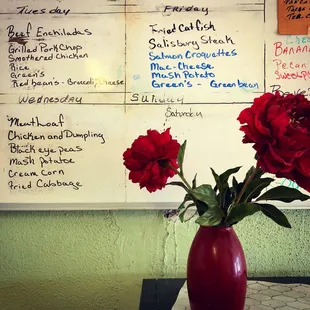 Tuesday
Beef Enchiladas
Grilled Pork Chop
Smothered Chicken
Rice
Green's
Red beans - Broccoli Cheese
Friday
Fried Catfish
Salisbury Steak
Salmon Croquettes
Mac-Cheese
Mash Potato
Green's - Greenbean
Wednesday
Meathoaf
Chicken and Dumpling
Black eye peas
Mash potatoe
Cream Corn
Fried Cabbage
Sunday
Saturday
BANANA
Pecan